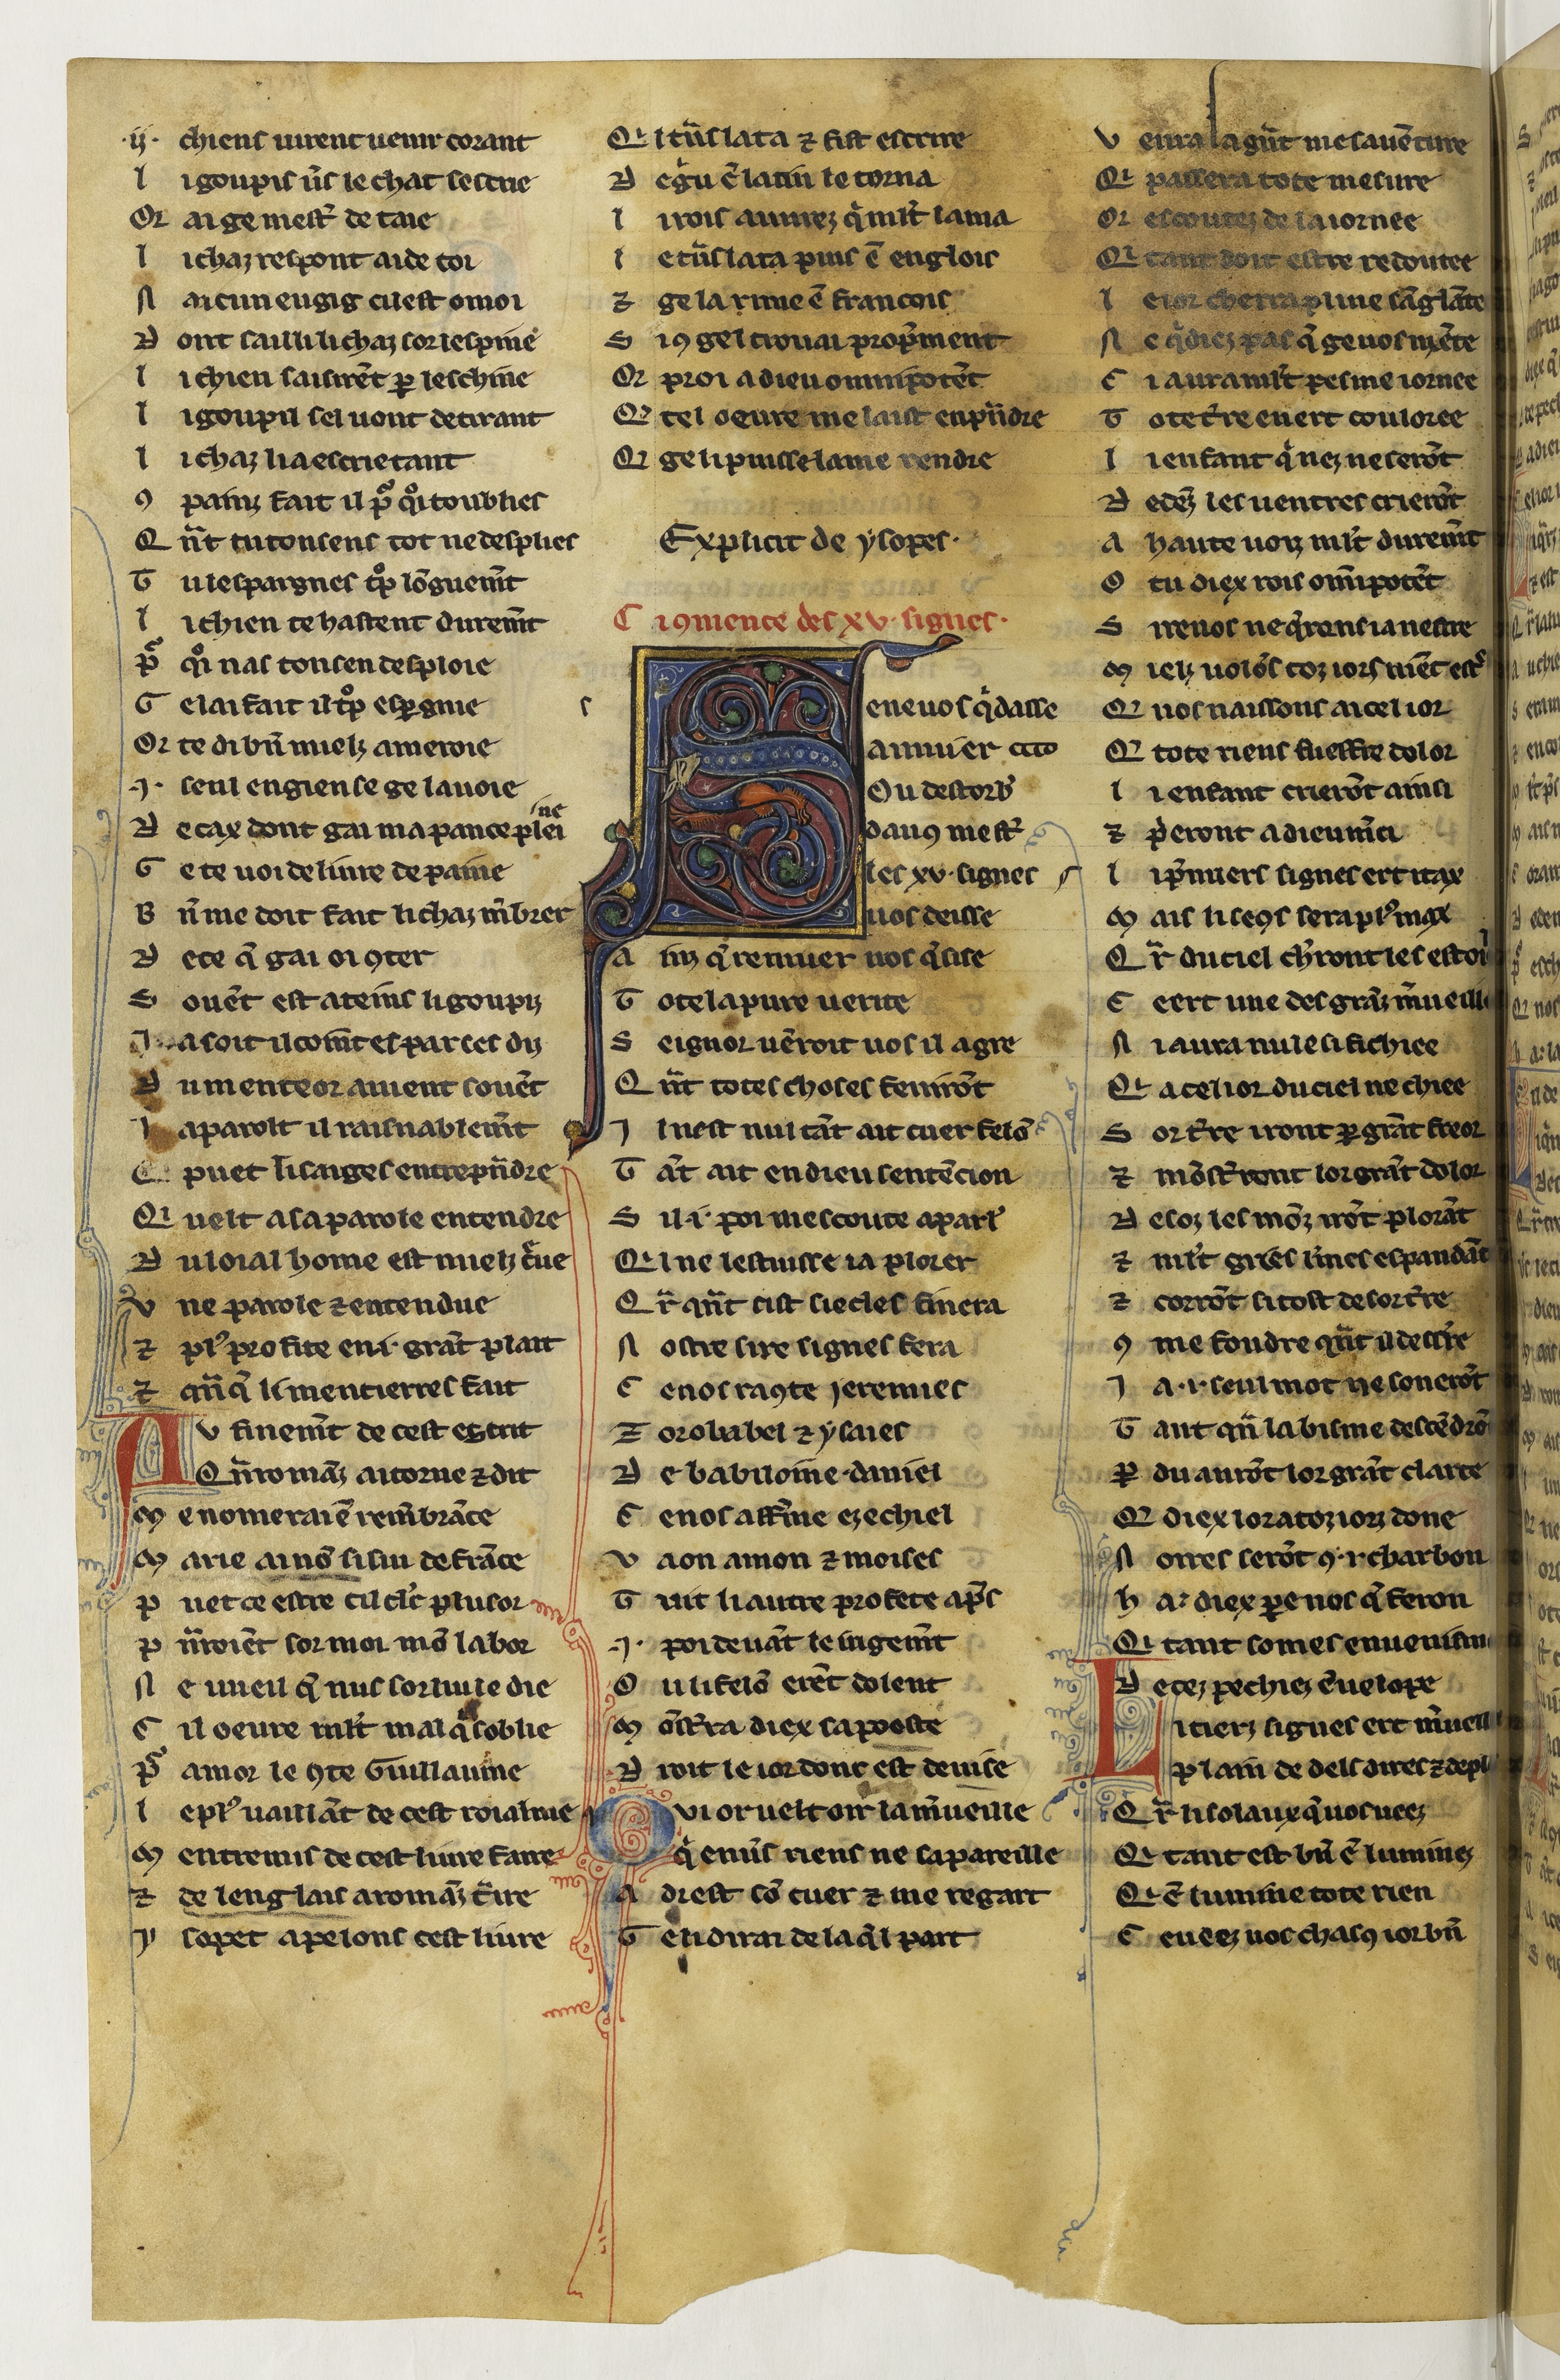 .ii. chiens uirent uenir corant
l i goupis u̅s le chat sescrie
Or ai ge mest̅ de taie
l i chaz respont aide toi
N ai c'un engig cil est o moi
D ont sailli li chaz sor lespine
l i chien saisire̅t ꝑ leschine
l i goupil sel uont detirant
l i chaz li a escrie tant
ꝯ painz fait il pͦ qͦi toublies
Q n̅t tu ton senc tot ne desplies
T u lespargnes tͦp lo̅guem̅t
l i chien te hastent durem̅t
pͦ qͦi nas ton sen desploie
G e lai fait il tͦp espgnie
Or te di bn̅ mielz ameroie
.I. seul engien se ge lauoie
D e cax dont gai ma pance pleine
G e te uoi deliure de paine
B n̅ me doit fait li chaz m̅brer
D e ce q̅ gai oi ꝯter
S oue̅t est ateins li goupiz
Ia soit il com̅t espar ses diz
D u menteor auient soue̅t
Ia parolt il raisnablem̅t
puet li saiges entrepn̅dre
Qi uelt a sa parole entendre
D u loial home est mielz c̅ue
V ne parole ⁊ entendue
⁊ plꝰ profite en .i. gra̅t plait
⁊ qn̅q̅ li mentierres fait
A V finem̅t de cest escrit
Q n̅ roma̅z ai torne ⁊ dit
M e nomerai e̅ rem̅bra̅ce
M arie ai no̅ si sui de fra̅ce
P uet ce estre cil clc̅ plusor
P n̅roie̅t sor moi mo̅ labor
N e uueil q̅ nus sor lui le die
C il oeure ml̅t mal qͥ soblie
Pͦ amor le ꝯte Guillaume
l e plꝰ uaillа̅t de cest roialme
M entremis de cest liure faire
⁊ de lenglais a roma̅z t̅ire
Y sopet apelons cest liure
Qi l tu̅slata ⁊ fist escrire
D e gͥu e̅ latin le torna
l i rois auurez qͥ ml̅t lama
l e tu̅slata puis e̅ englois
⁊ ge la rime e̅ francois
S iꝯ gel trouai prop̅ment
Or proi a dieu omnipote̅t
Q' tel oeure me laist enpn̅dre
Qi ge li puisse lame rendre
Explicit de ysopes.
C i ꝯmence des xv. signes.
S ene uos qͥdasse
annuier
Ou destorb̅
dauꝯ mest̅
les xv. signes
uos deisse
A inz q̅ remuer uos qͥsse
T ote la pure uerite
S eignor ue̅roit uos il a gre
Q n̅t totes choses feniro̅t
I l nest nul ta̅t ait cuer felo̅
T a̅t ait en dieu sente̅cion
S il .i. poi mescoute aparlꝰ
Qi l ne lestuisse ia plorer
Q r̅ qn̅t cist siecles finera
N ostre sire signes fera
C e nos raꝯte Jeremies
Z orobabel ⁊ ysaies
D e babiloine daniel
C e nos afferme ezechiel
V aon amon ⁊ moises
T uit li autre profete ap̅s
.I. poi deua̅t le iugem̅t
O u li felo̅ ere̅t dolent
M o̅st̅ra diex sa poste
D roit le ior dont est deuise
Q Vi or uelt oir la m̅ueille
qͥ enu̅s riens ne sapareille
A drest so̅ cuer ⁊ me regart
G e li dirai de la qͥl part
V enra la gn̅t mesaue̅ture
Qi passera tote mesure
Or escoutez de la iornee
Qi tant doit estre redoutee
l e ior cherra pluie sa̅gla̅te
N e qͥdiez pas q̅ ge uos m̅te
C i aura ml̅t pesme iornee
T ote t̅re en ert couloree
l i enfant qͥ nez ne sero̅t
D edez les uentres criero̅t
A haute uoiz ml̅t durem̅t
O tu diex rois omnipote̅t
S ire nos ne qͥrons ia nestre
M ielz uolo̅s toz iorz nie̅t estͬ
Qi nos naissons a icel ior
Qi tote riens sueffre dolor
l i enfant criero̅t ainsi
⁊ p̅eront a dieu m̅ci
l i p̅miers signes ert itax
M ais li seꝯs sera plꝰ max
Q r̅ du ciel ch̅ront les estoi
C e ert une des gra̅z m̅ueill
N i aura nule si fichiee
Qi a cel ior du ciel ne chiee
S or t̅re iront ꝑ gra̅t freor
⁊ mo̅st̅ront lor gra̅t dolor
D esoz les mo̅z iro̅t plora̅t
⁊ ml̅t gn̅s l̅mes espanda̅t
⁊ corro̅t si tost desor t̅re
ꝯ me foudre qn̅t il dess̅re
I a .i. seul mot ne sonero̅t
T ant qn̅ labisme desce̅dro̅
P duauro̅t lor gra̅t clarte
Qi diex lor a toz iorz done
N oires sero̅t ꝯ .i. charbon
H a. diex pe nos q̅ feron
Qi tant somes enuenim
D e cez pechiez e̅uelope
L i tierz signes ert m̅ueill
plain de dels dires ⁊ de pl
Q r̅ li solaux qͥ uos ueez
Qi tant est bn̅ e̅luminez
Qi e̅lumine tote rien
C e ueez uos chasꝯ ior bn̅